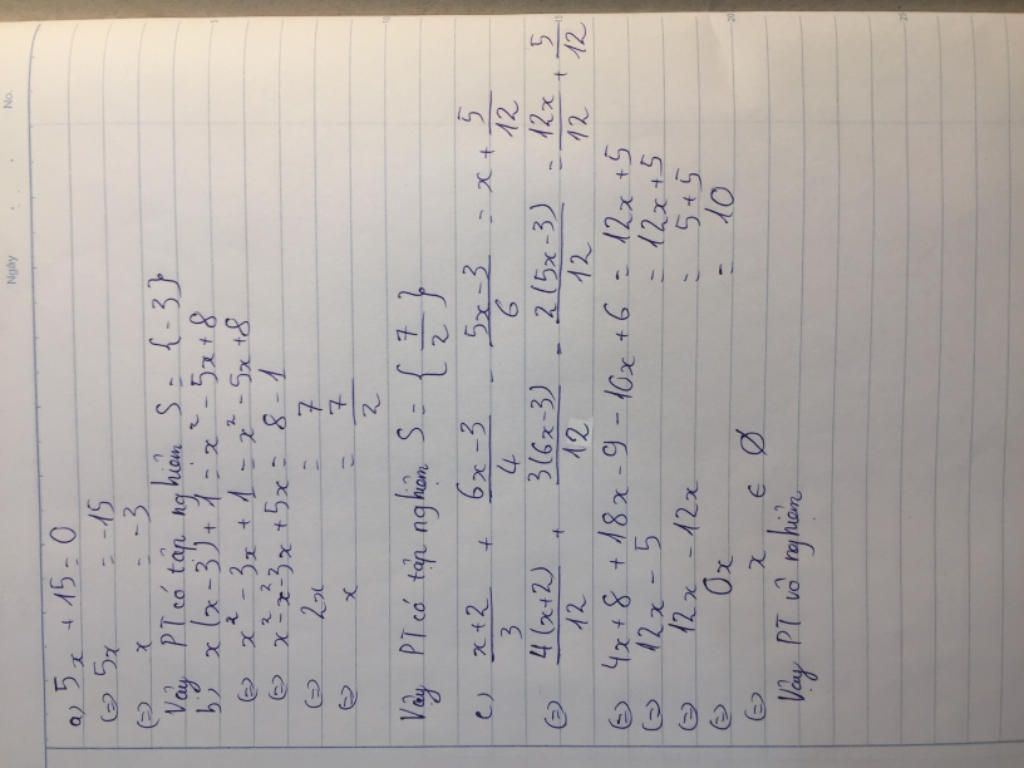 No.
Ngày
5
10
15
20
25
a) 5x + 15 = 0
(=) 5x = -15
(=) x = -3
Vậy PT có tập nghiệm S = {-3}
b) x(x-3)+1 = x² - 5x + 8
(=) x² - 3x + 1 = x² - 5x + 8
(=) x² - x² - 3x + 5x = 8 - 1
(=) 2x = 7
(=) x = 7/2
Vậy PT có tập nghiệm S = {7/2}
c) (x+2)/3 + (6x-3)/4 - (5x-3)/6 = x + 5/12
(=) 4(x+2)/12 + 3(6x-3)/12 - 2(5x-3)/12 = 12x/12 + 5/12
(=) 4x + 8 + 18x - 9 - 10x + 6 = 12x + 5
(=) 12x - 5 = 12x + 5
(=) 12x - 12x = 5 + 5
(=) 0x = 10
(=) x ∈ Ø
Vậy PT vô nghiệm